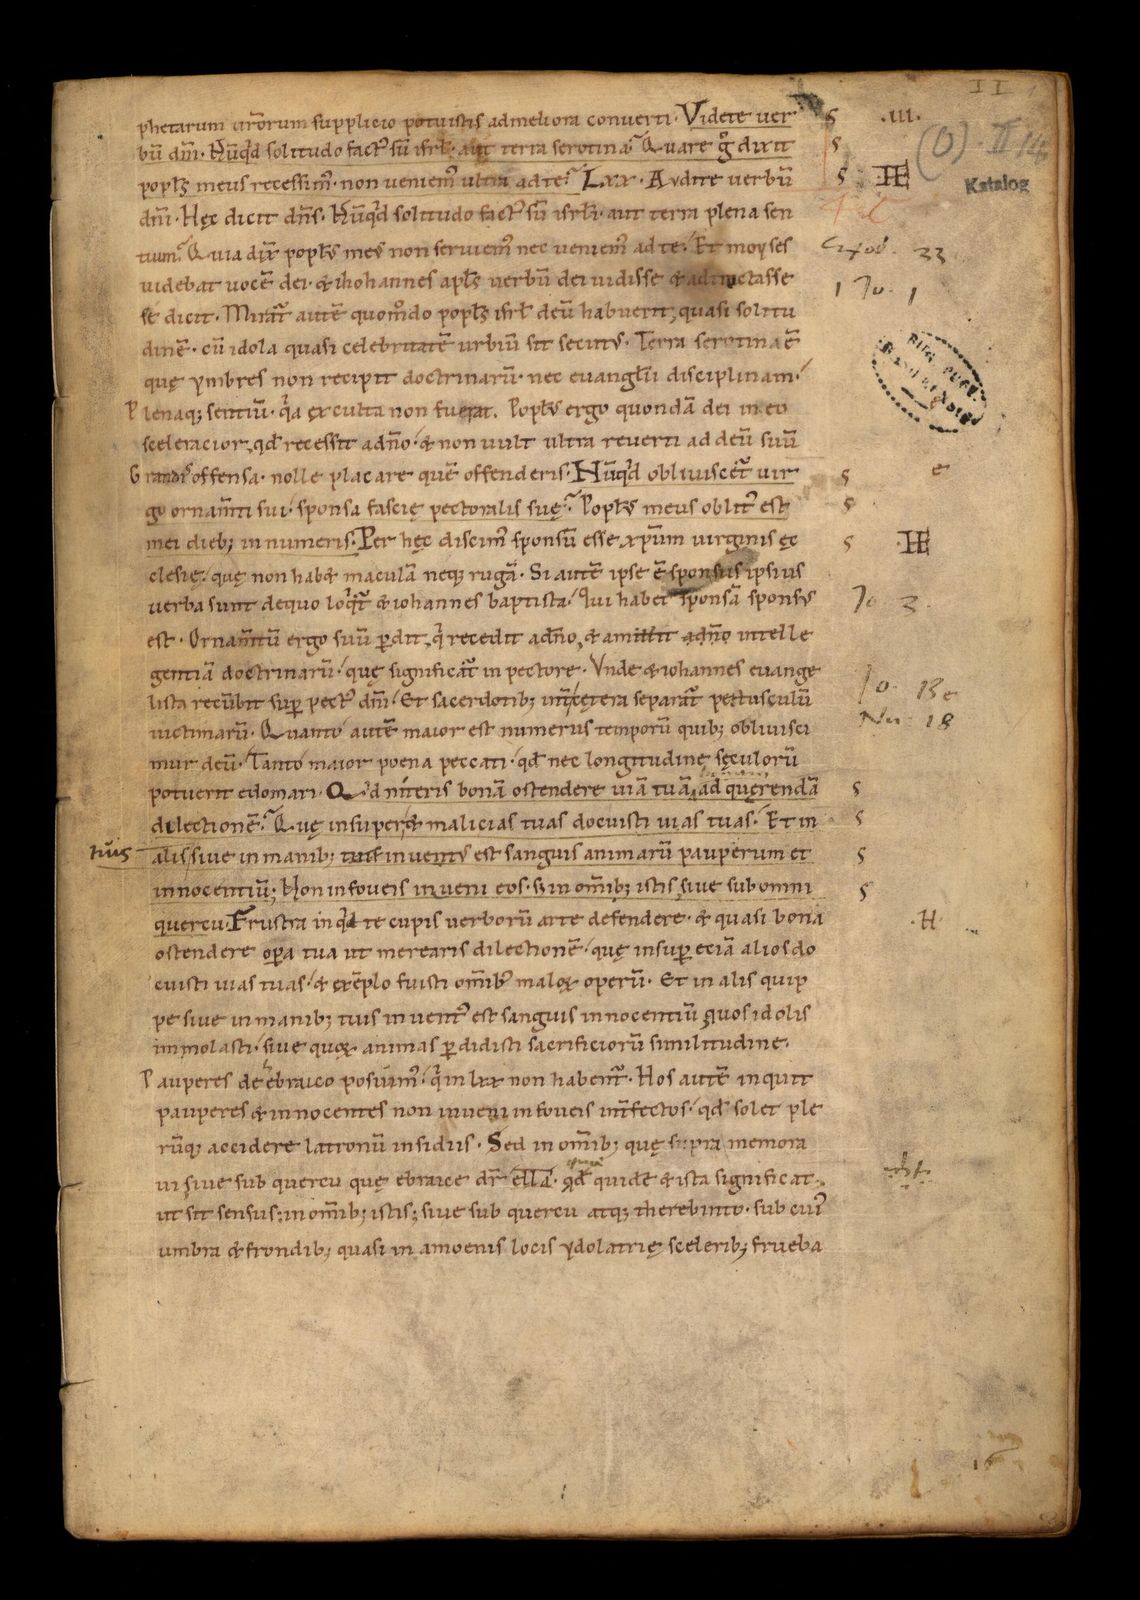 phetarum urōrum supplicio potuistis admeliora converti. Videte ver
bū dm̄i. Nūqͥd solitudo factꝰ sū isrl̄. aut terra serotina? Quare gͦ dixit
popl̄s meus recessimꝰ. non veniemꝰ ultra adte? Lxx. Audite verbū
dm̄i. Hęc dicit dn̄s. Nūqͥd solitudo factꝰ sū isrl̄i. aut terra plena sen
tium? Quia dix̄ popl̄s meus non serviemꝰ nec veniemꝰ ad te. Et moyses
videbat vocē dei. & iohannes apl̄s verbū dei vidisse & adtrectasse
sē dicit. Mirat̄ autē quomͦdo popl̄s isrl̄ deū habuerit, quasi solitu
dinē. cū idola quasi celebritatē urbiū sit secutꝰ. Terra serotina ē
quę ymbres non recipit doctrinarū. nec evangl̄ii disciplinam.
Plenaq; sentiū. qͥa exculta non fuerat. Popl̄s ergo quondā dei in eo
sceleracior, qd̄ recessit adn̄o. & non vult ultra reverti ad deū suū
Grandis offensa. nolle placare quē offenderis. Nūqͥd obliviscet̄ vir
go ornam̄ti sui. sponsa fascię pectoralis suę? Popl̄s meus oblitꝰ est
mei dieb; innumeris. Per hęc discimꝰ sponsū esse xp̄um virginis ęc
clesię. quę non habet maculā neq; rugā. Si autē ipse ē sponsus ipsius
verba sunt dequo loqͥt̄ & iohannes baptista. Qui habet sponsā sponsꝰ
est. Ornam̄tū ergo suū p̱dit, qͥ recedit adn̄o, & amittit adn̄o intelle
gentiā doctrinarū. quę significat̄ in pectore. Unde & iohannes evange
lista recūbit sup̱ pectꝰ dm̄i. Et sacerdotib; int̄ cętera separat̄ pectusculū
victimarū. Quanto autē maior est numerus temporū quib; oblivisci
mur deū. Tanto maior poena peccati. qd̄ nec longitudine sęculorū
potuerit edomari. Qͥd niteris bonā ostendere viā tuā, ad quęrendā
dilectionē? Quę insuper & malicias tuas docuisti vias tuas. Et in
tuis alis, sive in manib; tuis inventꝰ est sanguis animarū pauperum et
innocentiū; Non in foveis inveni eos. s; in om̄ib; istis, sive sub omni
quercu. Frustra inqͥd te cupis verborū arte defendere. & quasi bona
ostendere op̱a tua ut merearis dilectionē. quę insup̱ eciā alios do
cuisti vias tuas. & exēplo fuisti om̄ibꝰ maloꝝ operū. Et in alis quip
pe sive in manib; tuis inventꝰ est sanguis innocentiū quos idolis
immolasti. sive quoꝝ animas p̱didisti sacrificiorū similitudine.
Pauperes de hebraico posuimꝰ. qͥ in lxx non habent̄. Hos autē inquit
pauperes & innocentes non inveni in foveis int̄fectos. qd̄ solet ple
rūq; accidere latronū insidiis. Sed in om̄ib; quę supra memora
vi sive sub quercu quę ebraice dr̄ ella. qd̄ quidē & ista significat.
ut sit sensus; in om̄ib; istis; sive sub quercu atq; therebinto. sub cuiꝰ
umbra & frondib; quasi in amoenis locis ydolatrię scelerib; frueba
II
.III.
(O). II 14
Katalog
Exod. 33
1 Jo. 1
.H.
Jo 3.
Jo. 13 e
Nu. 18
.H.